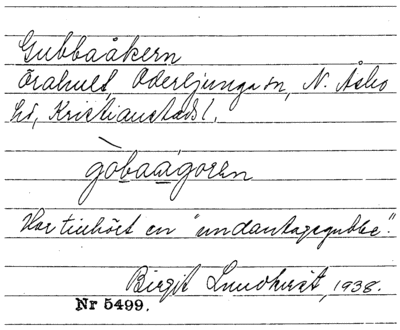 Gubbaåkern
Örahult, Oderljunga sn, N. Åsbo
hd, Kristianstads l.
gòbaágoren
Har tillhört en "undantagsgubbe".
Birgit Lundkvist, 1938.
Nr 5499.